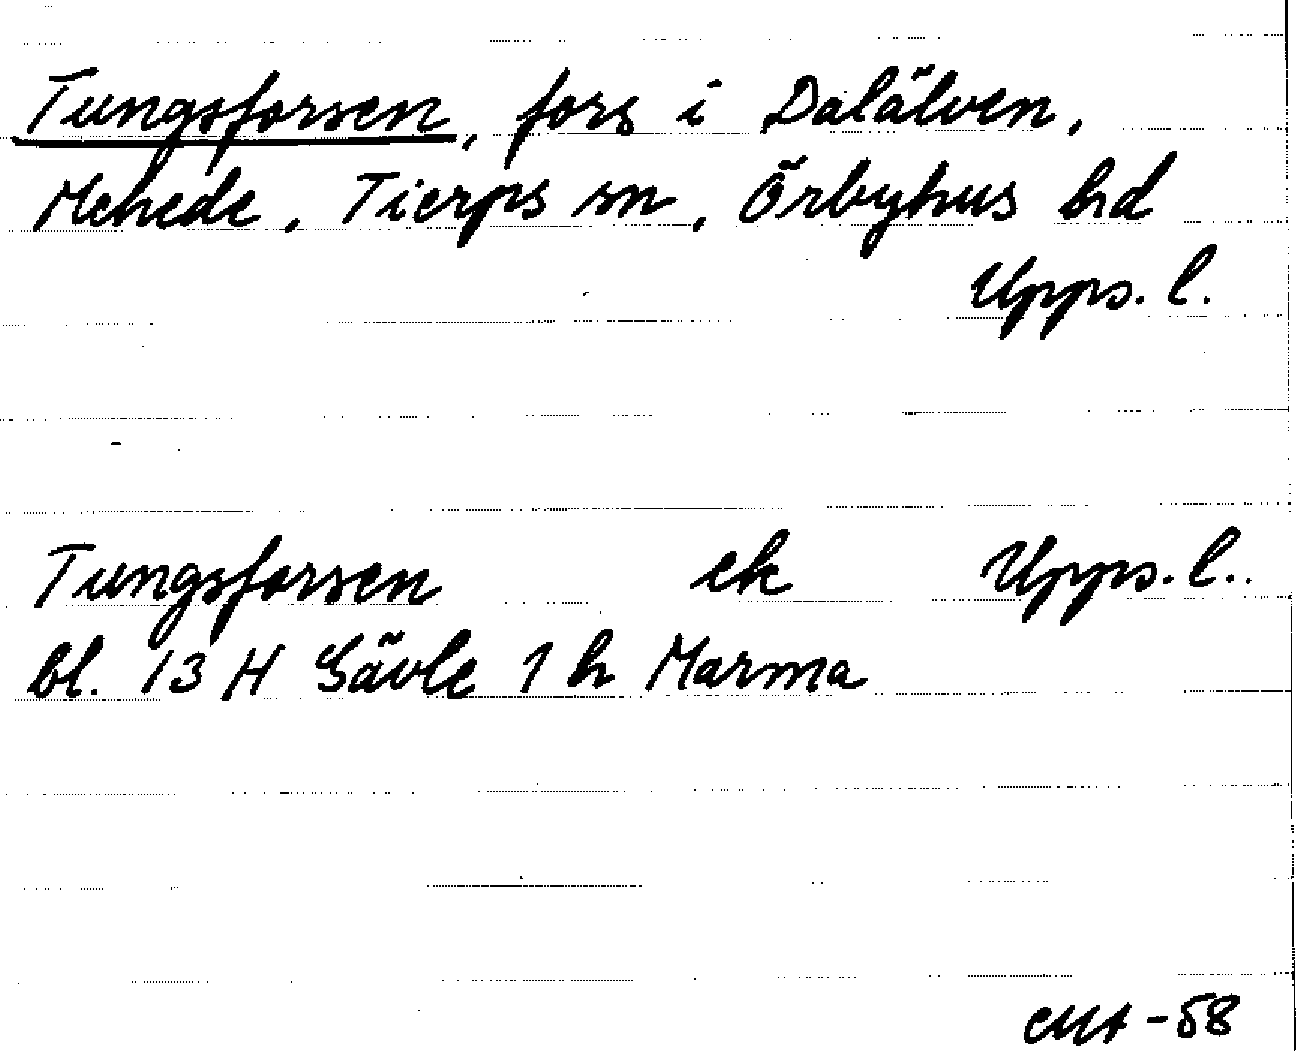 Tungsforsen, fors i Dalälven,
Mehede, Tierps sn, Örbyhus hd
Upps. l.
Tungsforsen ek Upps. l..
bl. 13 H Gävle 1 h Marma
-58